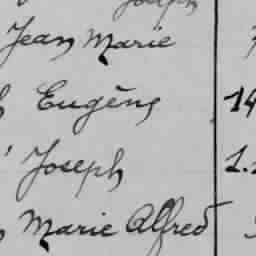 Joseph
Jean Marie
Eugène 14
Joseph 1.
Marie Alfred